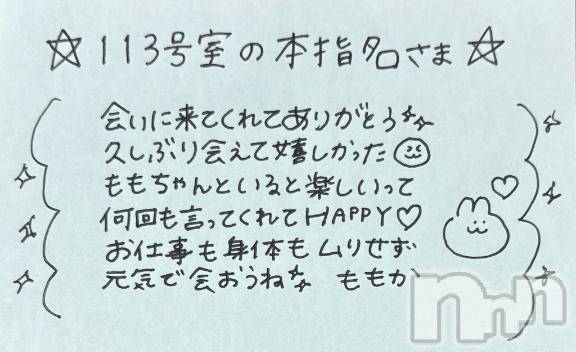 ☆113号室の本指名さま☆
会いに来てくれてありがとう✨
久しぶり会えて嬉しかった☺
ももちゃんといると楽しいって
何回も言ってくれてHAPPY♡
お仕事も身体もムリせず
元気で会おうね✨ ももか
nnn